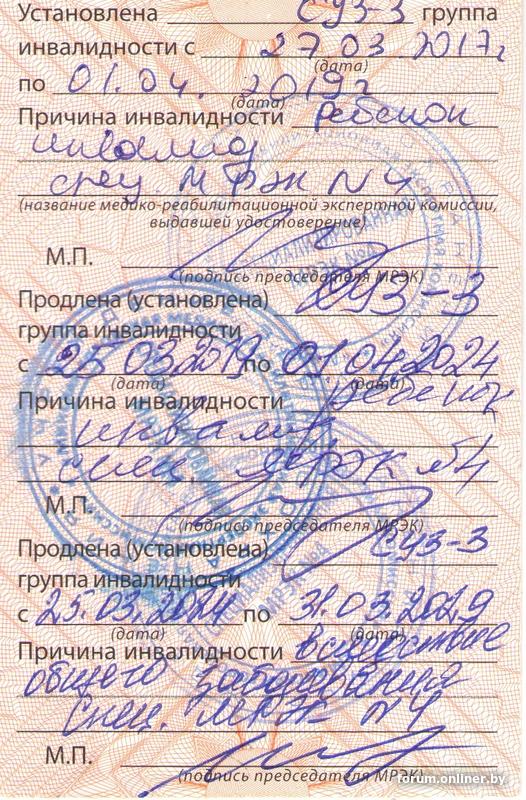 Установлена СУЗ-3 группа
инвалидности с 27.03.2017г
(дата)
по 01.04.2019г
(дата)
Причина инвалидности ребенок
инвалид
спец. МРЭК N4
(название медико-реабилитационной экспертной комиссии,
выдавшей удостоверение)
М.П.
(подпись председателя МРЭК)
Продлена (установлена) СУЗ-3
группа инвалидности
с 25.03.2019 по 01.04.2024
(дата) (дата)
Причина инвалидности ребенок
инвалид
спец. МРЭК №4
М.П.
(подпись председателя МРЭК)
Продлена (установлена) СУЗ-3
группа инвалидности
с 25.03.2024 по 31.03.2029
(дата) (дата)
Причина инвалидности вследствие
общего заболевания
Спец. МРЭК N4
М.П.
(подпись председателя МРЭК)
forum.onliner.by